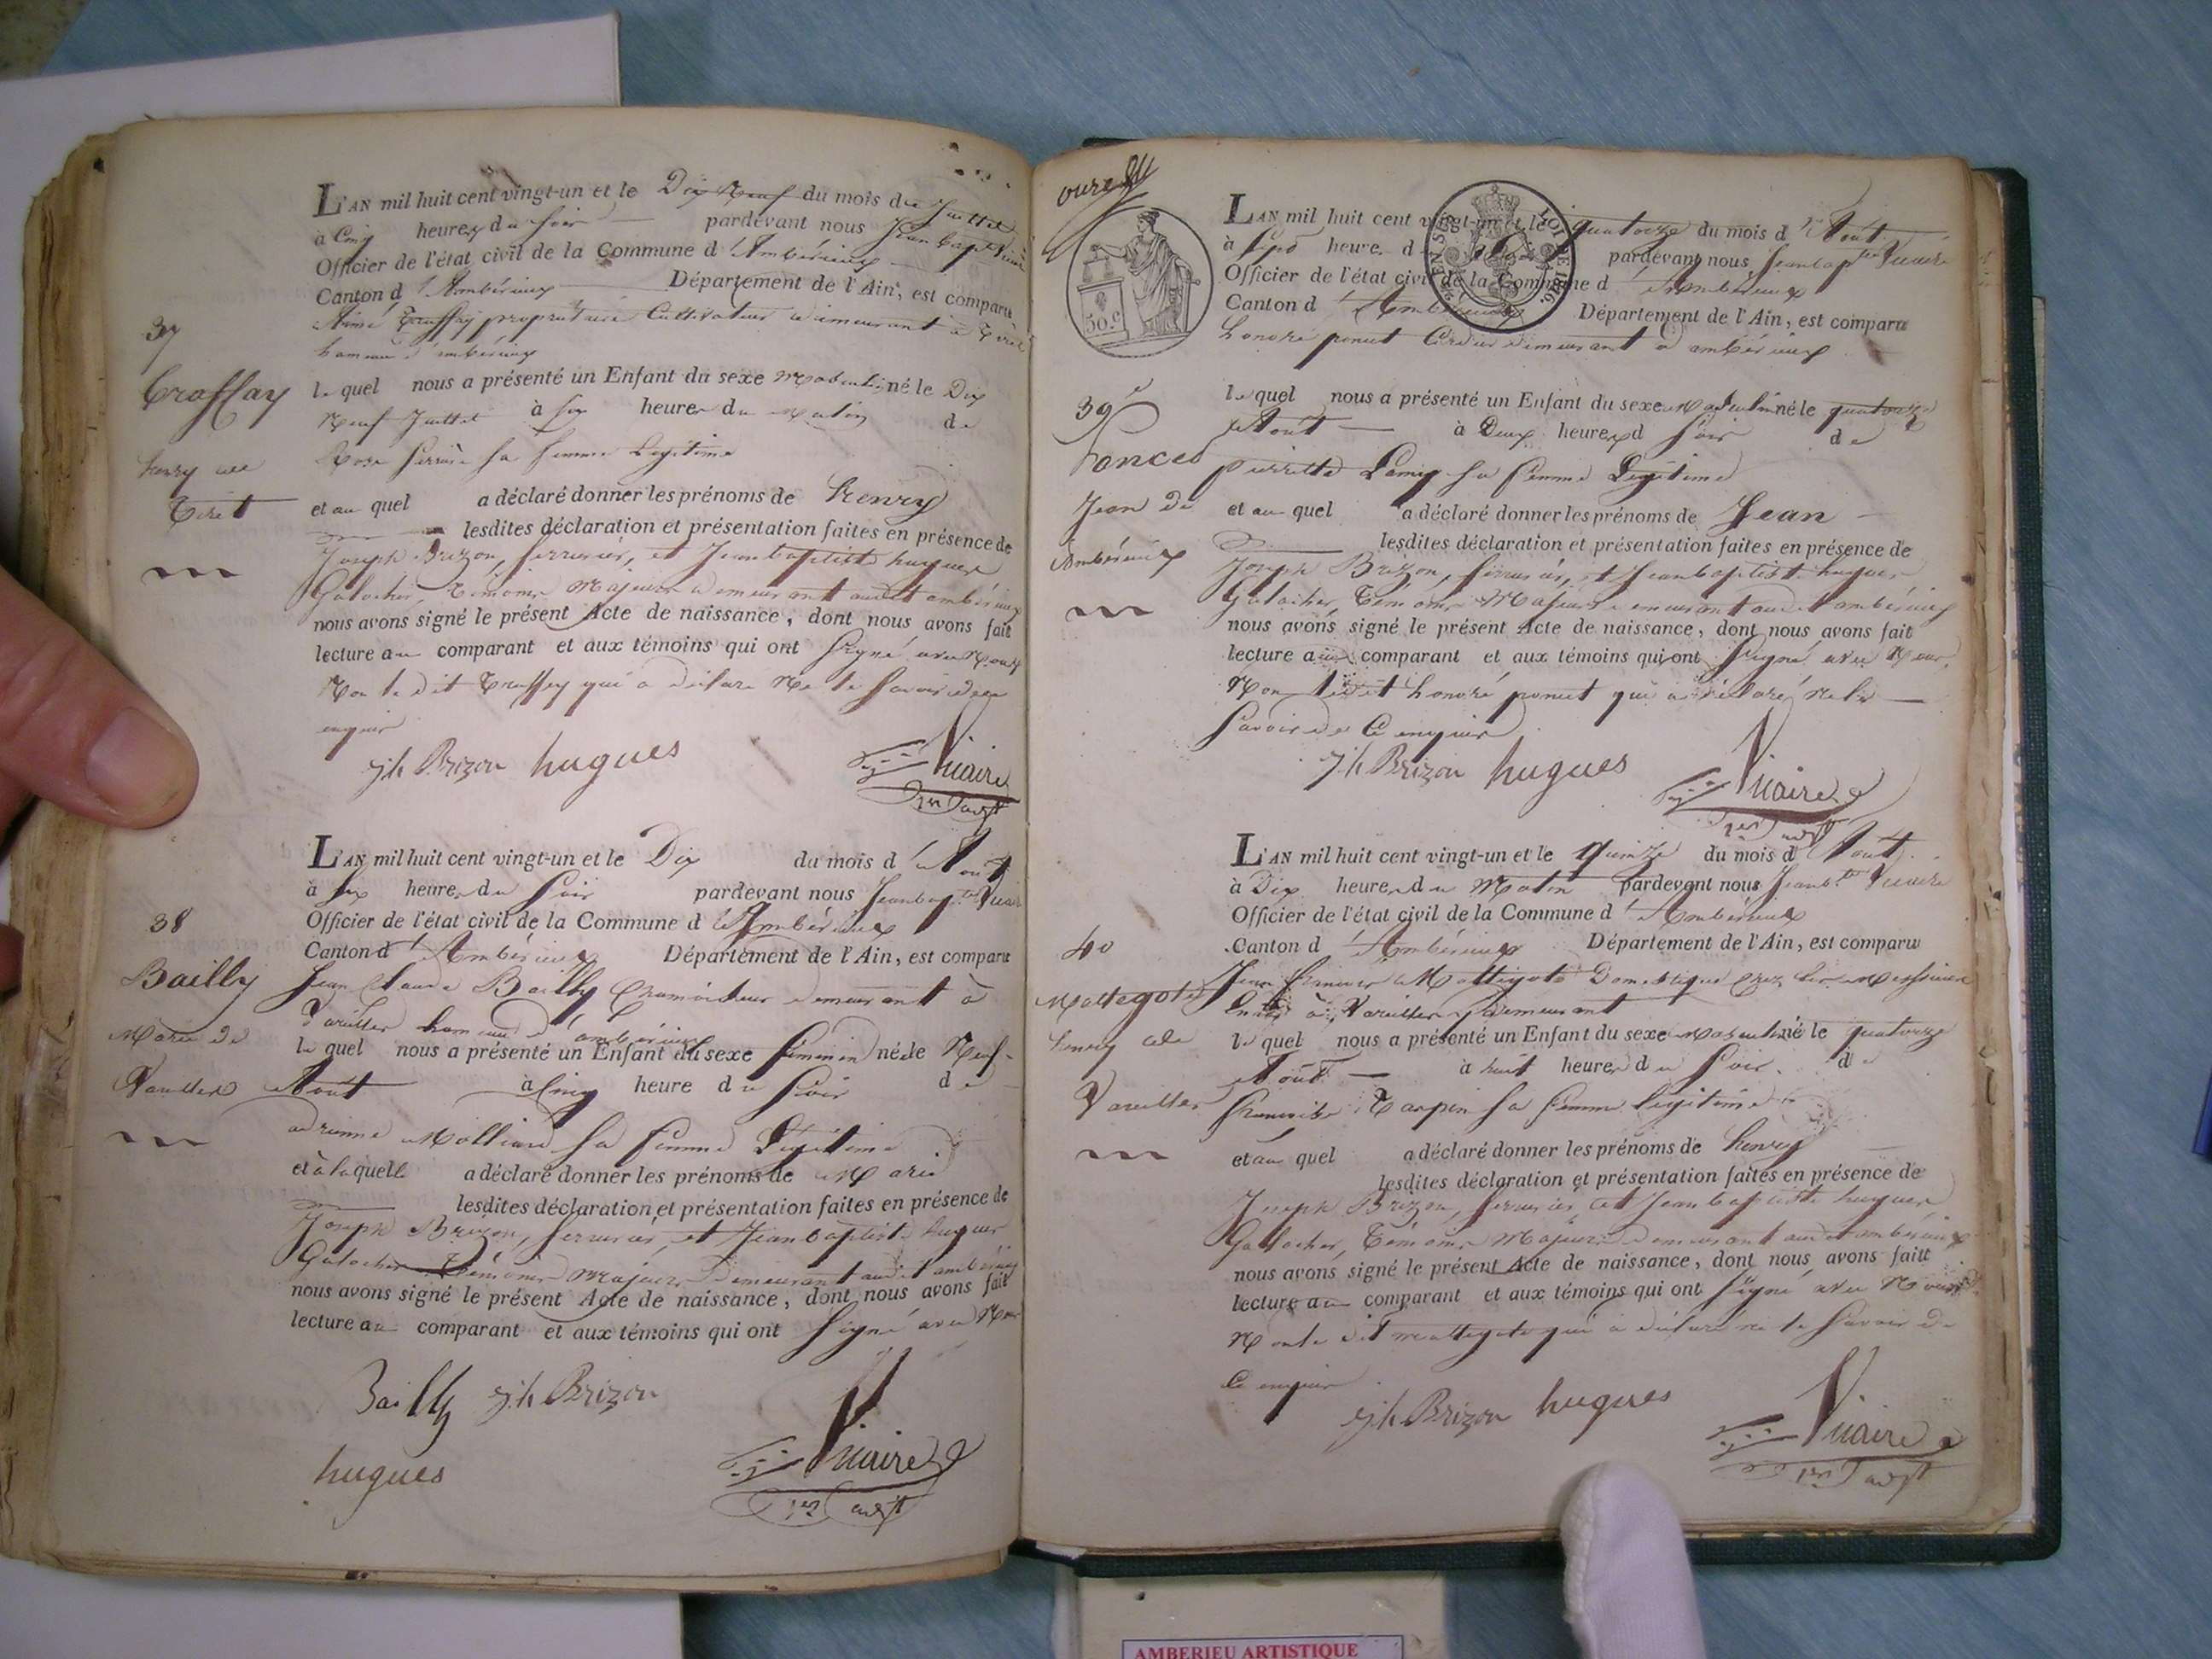 37
Truffay
henry de
Tiret
L'AN mil huit cent vingt-un et le Dix Neuf du mois de Juillet
à Cinq heures du Soir pardevant nous Jean bapte Vicaire
Officier de l'état civil de la Commune d'Ambérieux
Canton d'Ambérieux Département de l'Ain, est comparu
Aimé Truffay propriétaire Cultivateur demeurant à Tiret
hameau d'ambérieux
le quel nous a présenté un Enfant du sexe Masculin né le Dix
Neuf Juillet à six heures du Matin de
Rose sa femme Legitime
et au quel a déclaré donner les prénoms de henry
lesdites déclaration et présentation faites en présence de
Joseph Brizon, serrurier, et Jean baptiste hugues
Galocher, Témoins Majeurs demeurant audit ambérieux
nous avons signé le présent Acte de naissance, dont nous avons fait
lecture au comparant et aux témoins qui ont Signé avec Nous
Non le dit Truffay qui a déclaré Ne le Savoir de ce
enquis
jh Brizon hugues Vicaire
1er adjt
38
Bailly
Marie de
Vareilles
L'AN mil huit cent vingt-un et le Dix du mois d'Août
à six heures du Soir pardevant nous Jean bapte Vicaire
Officier de l'état civil de la Commune d'Ambérieux
Canton d'Ambérieux Département de l'Ain, est comparu
Jean Claude Bailly demeurant à
Vareilles hameau d'ambérieux
le quel nous a présenté un Enfant du sexe féminin née le Neuf
Août à Cinq heure du Soir de
adrienne Molliard Sa femme Legitime
et à laquelle a déclaré donner les prénoms de Marie
lesdites déclaration et présentation faites en présence de
Joseph Brizon, serrurier, et Jean baptiste hugues
Galocher Témoins Majeurs demeurant audit ambérieux
nous avons signé le présent Acte de naissance, dont nous avons fait
lecture au comparant et aux témoins qui ont Signé avec Nous
Bailly jh Brizon
hugues Vicaire
1er adjt
50.c
LOI DE 1816.
39
Poncet
Jean de
Ambérieux
L'AN mil huit cent vingt-un et le quatorze du mois d'Août
à Sept heure d pardevant nous Jean bapte Vicaire
Officier de l'état civil de la Commune d'Ambérieux
Canton d'Ambérieux Département de l'Ain, est comparu
honoré poncet demeurant à ambérieux
le quel nous a présenté un Enfant du sexe Masculin né le quatorze
Août à Deux heures d Soir de
pierrette Sa femme Legitime
et au quel a déclaré donner les prénoms de Jean
lesdites déclaration et présentation faites en présence de
Joseph Brizon, serrurier, et Jean baptiste hugues
Galocher, Témoins Majeurs demeurant audit ambérieux
nous avons signé le présent Acte de naissance, dont nous avons fait
lecture au comparant et aux témoins qui ont Signé avec Nous
Non ledit honoré poncet qui a déclaré ne le
Savoir de Ce enquis
jh Brizon hugues Vicaire
1er adjt
40
Mattegots
henry de
Vareilles
L'AN mil huit cent vingt-un et le quinze du mois d'Août
à Dix heures du Matin pardevant nous Jean bte Vicaire
Officier de l'état civil de la Commune d'Ambérieux
Canton d'Ambérieux Département de l'Ain, est comparu
Jean francois Mattegots Domestique Chez les Messieurs
à Vareilles y demeurant
le quel nous a présenté un Enfant du sexe Masculin né le quatorze
Août à huit heures du Soir de
francoise Tarpin Sa femme legitime
et au quel a déclaré donner les prénoms de henry
lesdites déclaration et présentation faites en présence de
Joseph Brizon, serrurier, et Jean baptiste hugues
Galocher, Témoins Majeurs demeurant audit ambérieux
nous avons signé le présent Acte de naissance, dont nous avons fait
lecture au comparant et aux témoins qui ont Signé avec Nous
Non le dit mattegots qui a déclaré ne le Savoir de
Ce enquis
jh Brizon hugues Vicaire
1er adjt
AMBERIEU ARTISTIQUE